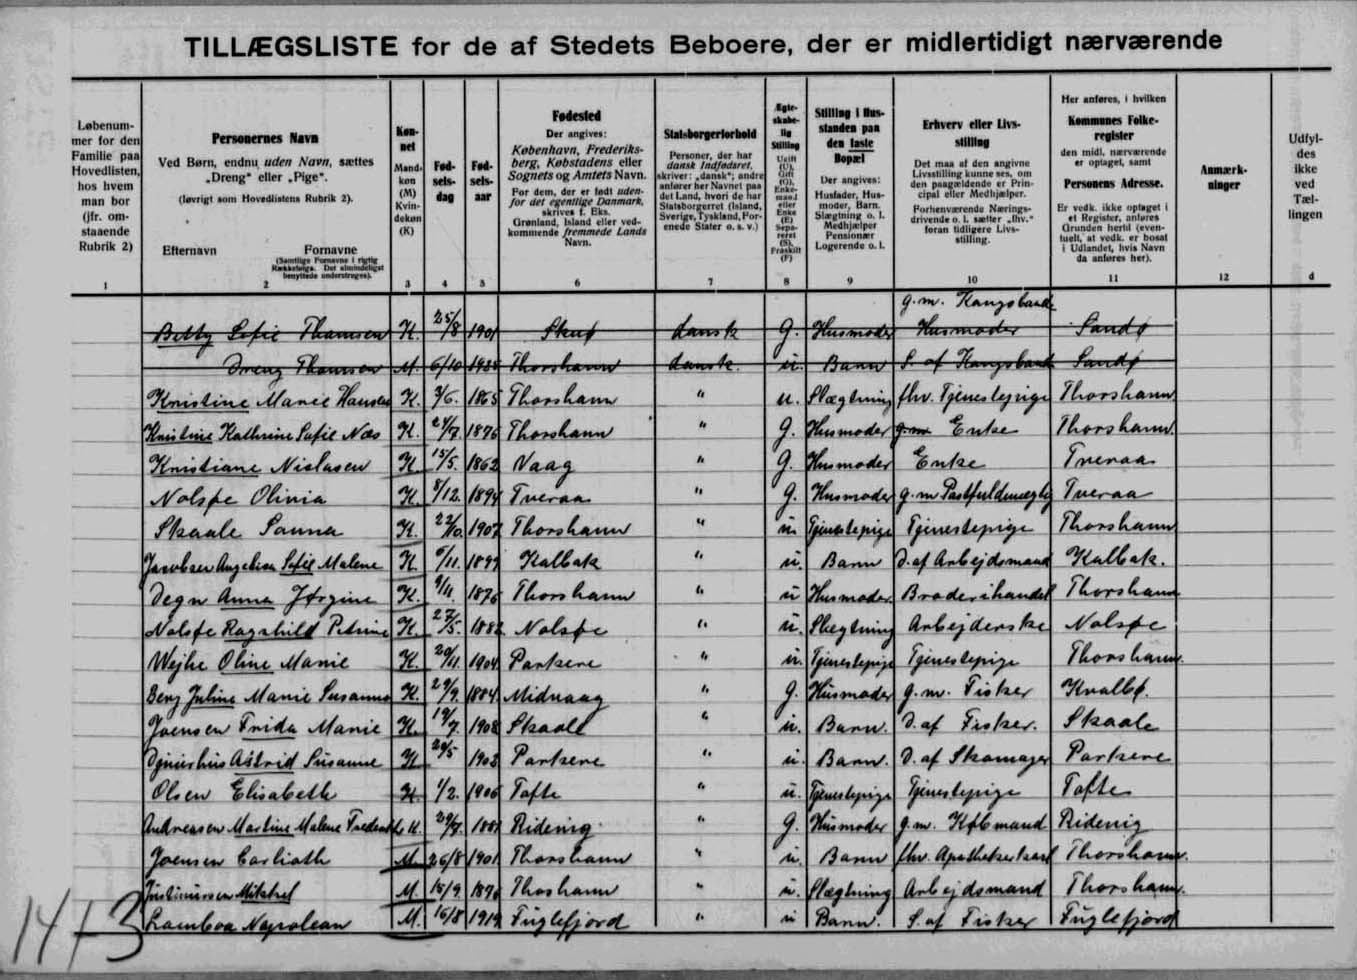 TILLÆGSLISTE for de af Stedets Beboere, der er midlertidigt nærværende
Løbenum-
mer for den
Familie paa
Hovedlisten,
hos hvem
man bor
(jfr. om-
staaende
Rubrik 2)
Personernes Navn
Ved Børn, endnu uden Navn, sættes
„Dreng" eller „Pige".
(Iøvrigt som Hovedlistens Rubrik 2).
Efternavn Fornavne
(Samtlige Fornavne i rigtig
Rækkefølge. Det almindeligst
benyttede understreges).
Køn-
net
Mand-
køn
(M)
Kvin-
dekøn
(K)
Fød-
sels-
dag
Fød-
sels-
aar
Fødested
Der angives:
København, Frederiks-
berg, Købstadens eller
Sognets og Amtets Navn.
For dem, der er født uden-
for det egentlige Danmark,
skrives f. Eks.
Grønland, Island eller ved-
kommende fremmede Lands
Navn.
Statsborgerforhold
Personer, der har
dansk Indfødsret,
skriver: „dansk"; andre
anfører her Navnet paa
det Land, hvori de har
Statsborgerret (Island,
Sverige, Tyskland, For-
enede Stater o. s. v.)
Ægte-
skabe-
lig
Stilling
Ugift
(U),
Gift
(G),
Enke-
mand
eller
Enke
(E)
Sepa-
reret
(S),
Fraskilt
(F)
Stilling i Hus-
standen paa
den faste
Bopæl
Der angives:
Husfader, Hus-
moder, Barn,
Slægtning o. l.
Medhjælper
Pensionær
Logerende o. l.
Erhverv eller Livs-
stilling
Det maa af den angivne
Livsstilling kunne ses, om
den paagældende er Prin-
cipal eller Medhjælper.
Forhenværende Nærings-
drivende o. l. sætter „fhv."
foran tidligere Livs-
stilling.
Her anføres, i hvilken
Kommunes Folke-
register
den midl. nærværende
er optaget, samt
Personens Adresse.
Er vedk. ikke optaget i
et Register, anføres
Grunden hertil (even-
tuelt, at vedk. er bosat
i Udlandet, hvis Navn
da anføres her).
Anmærk-
ninger
Udfyl-
des
ikke
ved
Tæl-
lingen
1 2 3 4 5 6 7 8 9 10 11 12 d
g. m. Kongsbonde
Betty Sofie Thomsen K. 25/8 1901 Skuø dansk G. Husmoder Husmoder Sandø
Dreng Thomsen M. 6/10 Thorshavn dansk. u. Barn S. af Kongsbonde Sandø
Kristine Marie Hansen K. 1865 Thorshavn " u. Slægtning fhv. Tjenestepige Thorshavn
Kristine Kathrine Sofie Næs K. 1876 Thorshavn " G. Husmoder g.m. Enke Thorshavn.
Kristiane Nielasen K 15/5. 1862 Vaag " G. Husmoder Enke Tveraa
Nolsøe Olivia K. 8/12. 1894 Tveraa " G. Husmoder g. m Tveraa
Skaale Sanna K. 22/10. 1907 Thorshavn " u. Tjenestepige Tjenestepige Thorshavn
Jacobsen Angelica Sofie Malene K. /11. Kalbak " u. Barn D. af Arbejdsmand Kalbak.
Degn Anna Jørgine K. 9/11. 1876 Thorshavn " u Husmoder. Broderihandel Thorshavn
Nolsøe Ragnhild Petrine K. 27/5. 1882. Nolsøe " u. Slægtning Arbejderske Nolsøe
Wejhe Oline Marie K. 20/11. 1904. Porkere " u. Tjenestepige Tjenestepige Thorshavn.
Berg Juline Marie Susanna K. 29/9. 1884. Midvaag " G. Husmoder g. m. Fisker Kvalbø.
Joensen Frida Marie K. 19/7. 1908 Skaale " u. Barn. D. af Fisker. Skaale
Astrid Susanne K 1903 Porkere " u. Barn. D. af Skomager Porkere
Olsen Elisabeth K 1/2. 1906 Tofte " u. Tjenestepige Tjenestepige Tofte
Andreasen Martine Malene K. 1881 Ridevig " G. Husmoder g. m. Købmand Ridevig
Joensen M. 26/8 1901. Thorshavn " u. Barn fhv. Apothekerkarl Thorshavn.
Justinussen Mikkel M. 15/9. 1896 Thoshavn " u. Slægtning Arbejdsmand Thorshavn.
Napolean M. 16/8 1919 Fuglefjord " u Barn. S. af Fisker Fuglefjord
14+3